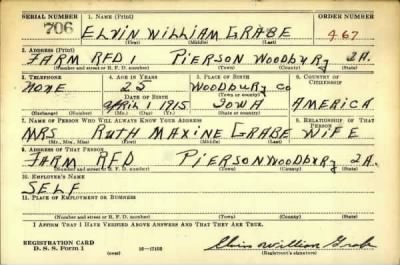 SERIAL NUMBER 1. NAME (Print) ORDER NUMBER
706 ELVIN WILLIAM GRABE 967
(First) (Middle) (Last)
2. ADDRESS (Print)
FARM RFD 1 PIERSON WOODBURY IA.
(Number and street or R. F. D. number) (Town) (County) (State)
3. TELEPHONE 4. AGE IN YEARS 5. PLACE OF BIRTH 6. COUNTRY OF CITIZENSHIP
NONE 25 WOODBURY CO
DATE OF BIRTH (Town or county)
APRIL 1 1915 IOWA AMERICA
(Exchange) (Number) (Mo.) (Day) (Yr.) (State or country)
7. NAME OF PERSON WHO WILL ALWAYS KNOW YOUR ADDRESS 8. RELATIONSHIP OF THAT PERSON
MRS RUTH MAXINE GRABE WIFE
(Mr., Mrs., Miss) (First) (Middle) (Last)
9. ADDRESS OF THAT PERSON
FARM RFD PIERSON WOODBURY IA.
(Number and street or R. F. D. number) (Town) (County) (State)
10. EMPLOYER'S NAME
SELF
11. PLACE OF EMPLOYMENT OR BUSINESS
(Number and street or R. F. D. number) (Town) (County) (State)
I AFFIRM THAT I HAVE VERIFIED ABOVE ANSWERS AND THAT THEY ARE TRUE.
REGISTRATION CARD
D. S. S. Form 1 (over) Elvin William Grabe
(Registrant's signature)